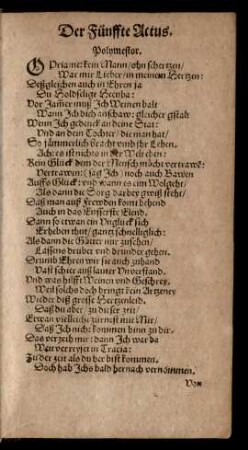 Der Fünffte Actus.
Polymestor.
O Priame: kein Mann/ ohn schertzen/
War mir Lieber/ in meinem Hertzen:
Deßgleichen auch in Ehren ja
Du Holdseligt Hecuba:
Vor Jamer muß Ich Weinen balt
Wann Ich dich anschaw: gleicher gstalt
Wenn Ich gedenck an deine Stat:
Vnd an dein Tochter/ die man hat/
So jämmerlich bracht vmb ihr Leben.
Ach: es ist nichts in der Welt eben:
Kein Glück dem der Mensch möcht vertrawē:
Vertrawen: (sag Ich) noch auch Bawen
Auffs Glück: vnd wann es eim Wolgeht/
Als dann die Sorg darbey gwiß steht/
Daß man auß frewden komt behend
Auch in das Eusserste Elend.
Dann so etwan ein Vnglück sich
Erheben thut/ gantz schnelliglich:
Als dann die Götter nur zusehen/
Lassens drüber vnd drunder gehen.
Drumb Ehren wir sie auch zuhand
Vast schier auß lauter Vnverstand.
Vnd was hilfft Weinen vnd Geschrey,
Weil solchs doch bringt kein Artzeney
Wieder diß grosse Hertzenleid.
Daß du aber/ zu dieser zeit/
Etwan vielleicht zürnest mit Mir/
Daß Ich nicht kommen binn zu dir.
Das verzeih mir: dann Ich war da
Weit verreyset in Tracia:
Zu der zeit als du her bist kommen.
Doch hab Ichs bald hernach vernommen.
Von